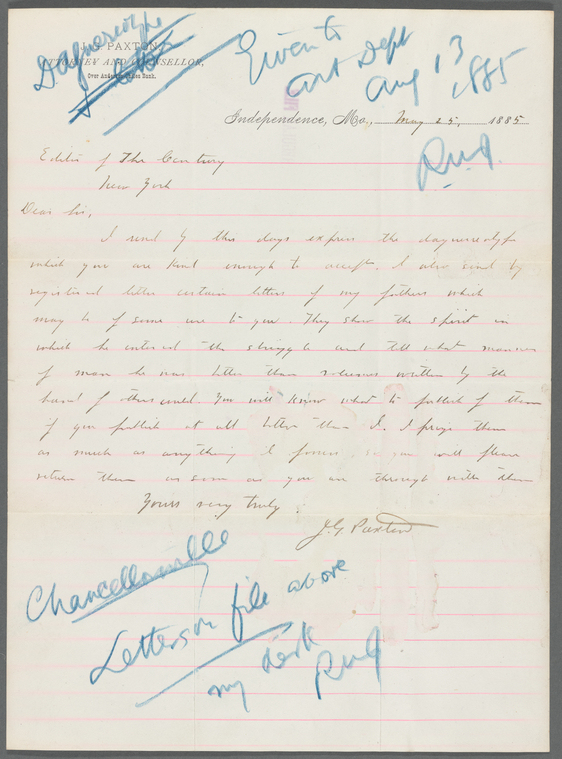 Daguerreotype
& letters
J. G. PAXTON,
ATTORNEY AND COUNSELLOR,
Over Anderson Chiles Bank.
Given to
Art Dept
Aug 13
1885
Independence, Mo., May 25, 1885
Editor of The Century
New York
Dear Sir,
I send by this days express the daguereotype
which you are kind enough to accept. I also send by
registered letter certain letters of my fathers which
may be of some use to you. They show the spirit in
which he entered the struggle and tell what manner
of man he was better than volumes written by the
hand of others could. You will know what to publish of them
if you publish at all better than I. I prize them
as much as anything I possess so you will please
return them as soon as you are through with them
Yours very truly,
J. G. Paxton
Chancellorsville
Letters on file above
my desk